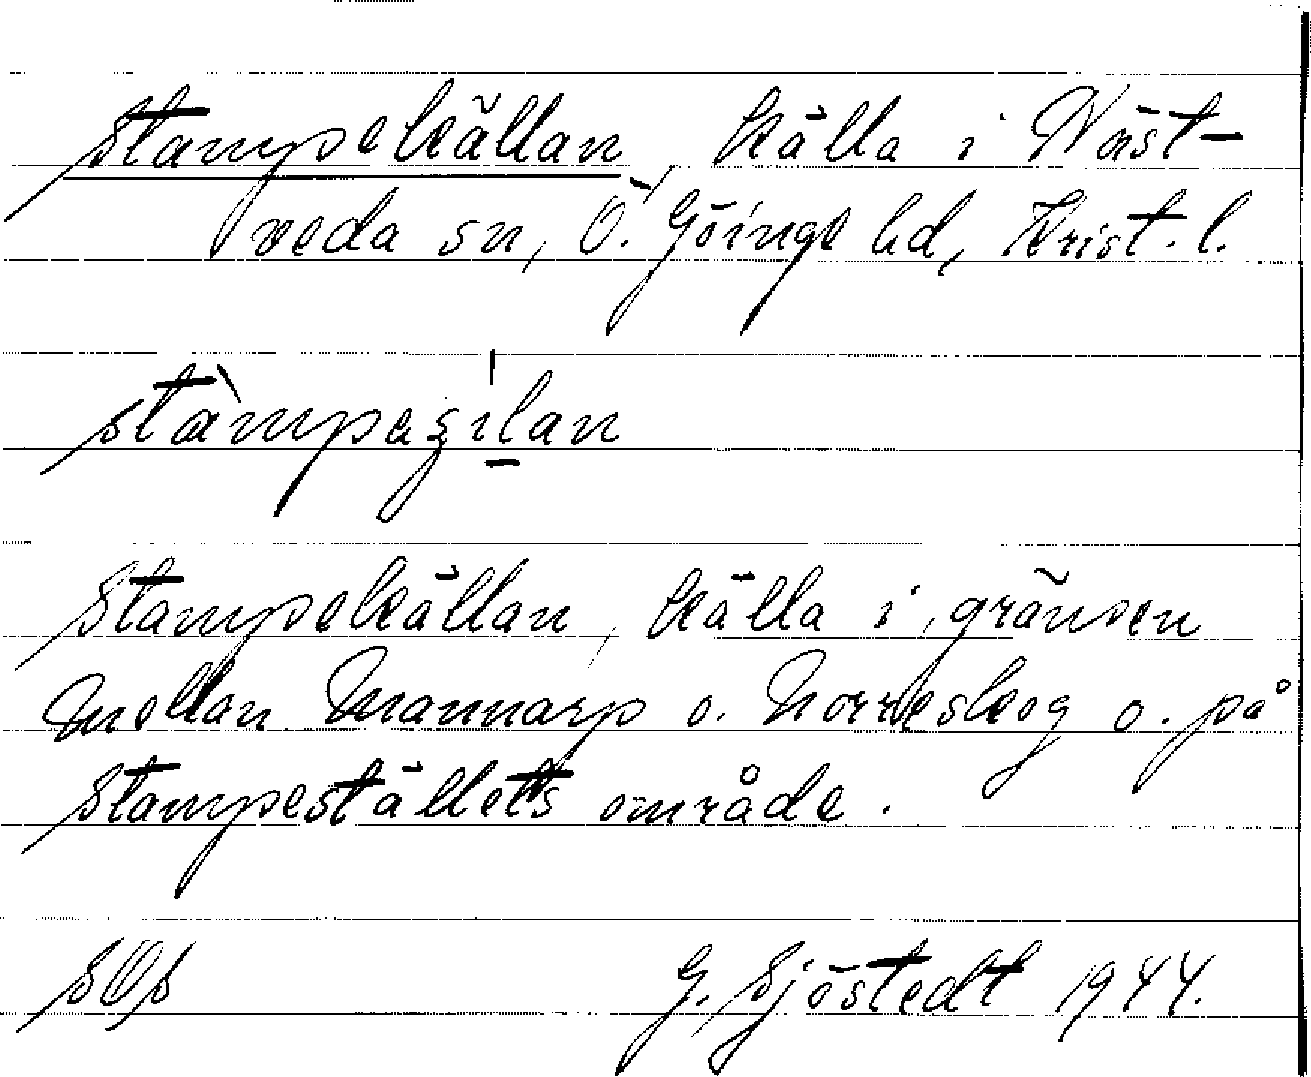 Stampekällan, källa i Näst-
veda sn, Ö. Göinge hd, Krist. l.
Stampekällan, källa i gränsen
mellan Mannarp o. Norreskog o. på
Stampeställets område.
G. Sjöstedt 1944.